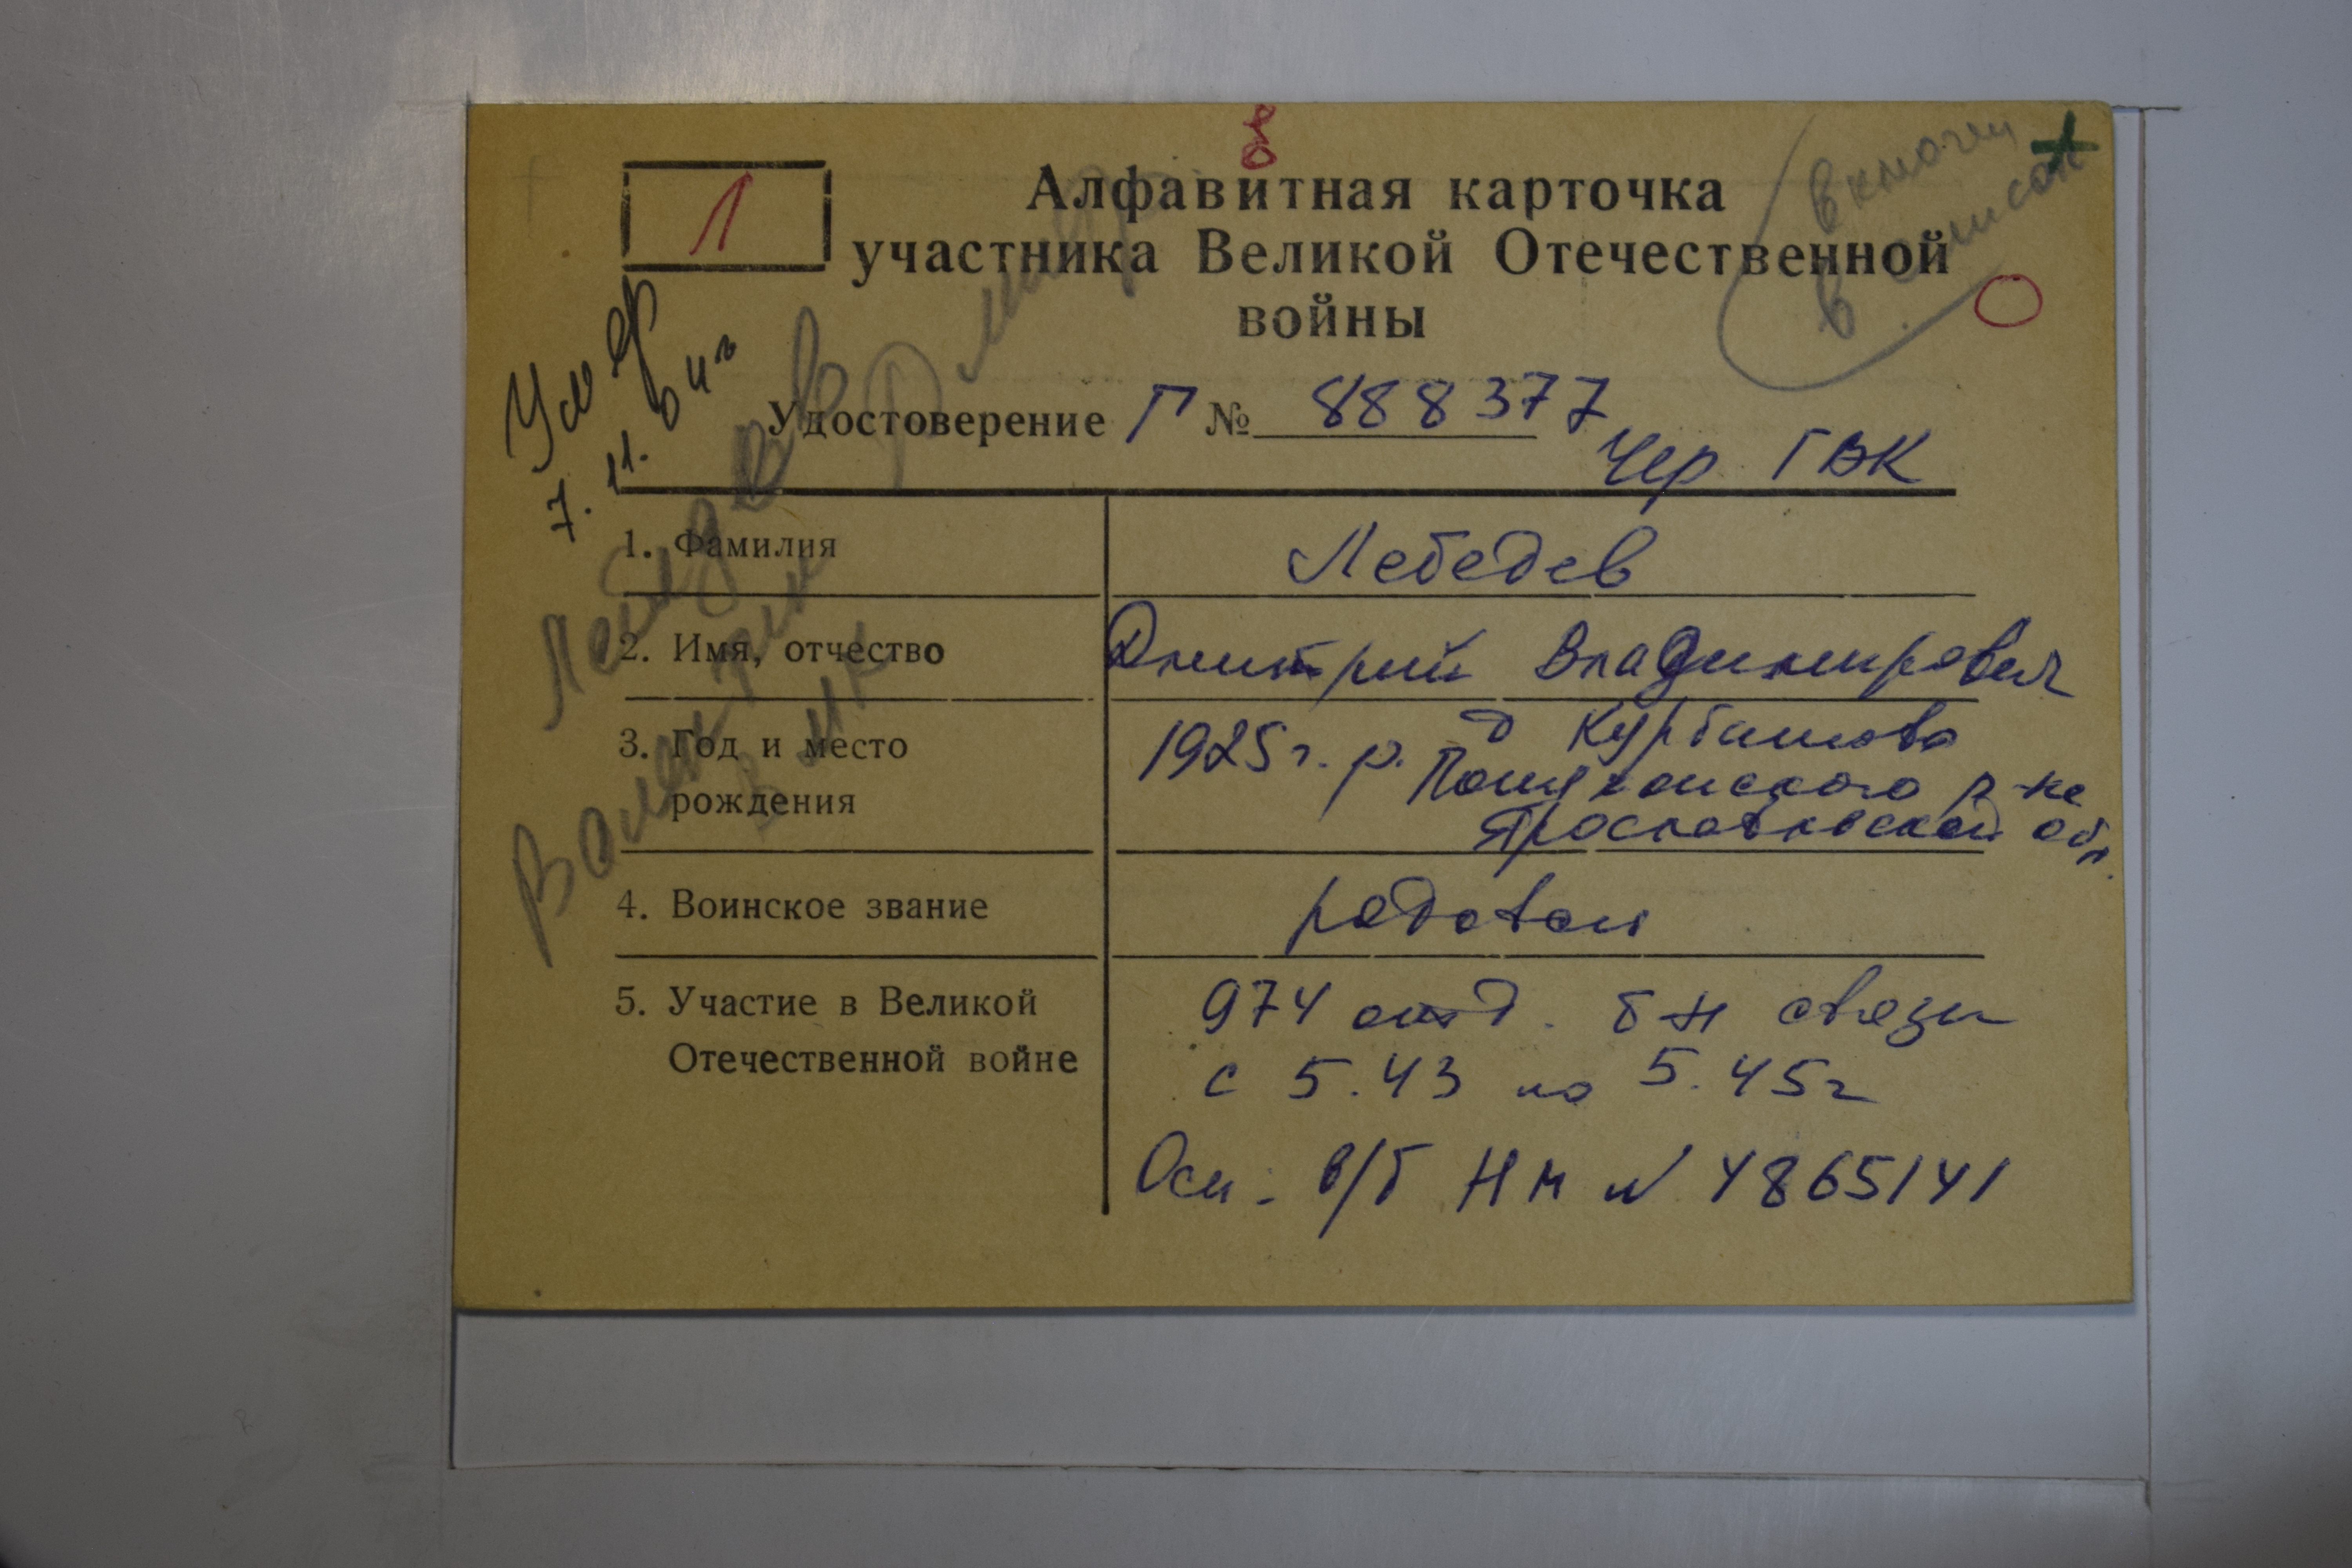 Л
8
Алфавитная карточка
участника Великой Отечественной
войны
включен
в список
Умер
7.11.04г
Удостоверение Г № 888377
Чер ГВК
Лебедев
Дмитр
Валентин
1. Фамилия Лебедев
2. Имя, отчество Дмитрий Владимирович
3. Год и место рождения 1925г.р. д Курбашово
Пошехонского р-на
Ярославской обл.
4. Воинское звание рядовой
5. Участие в Великой 974 отд. б-н связи
Отечественной войне с 5.43 по 5.45г
Осн: в/б НМ № 4865141